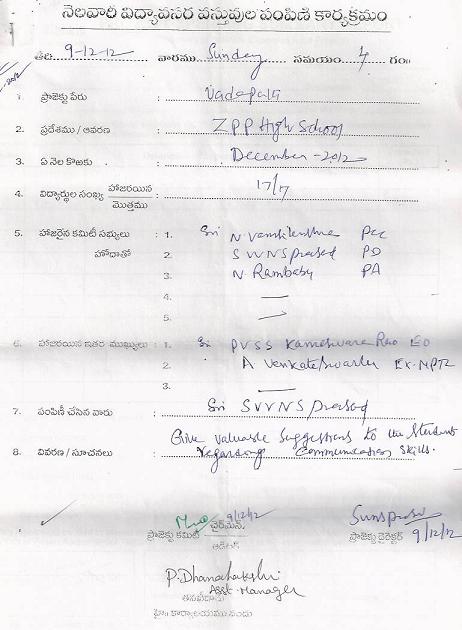 నెలవారి విద్యావసర వస్తువుల పంపిణి కార్యక్రమం
తేది 9-12-12 వారము Sunday సమయం 4 గం॥
1. ప్రాజెక్టు పేరు : Vadapalli
2. ప్రదేశము / ఆవరణ : ZPP High School
3. ఏ నెల కొఱకు : December-2012
4. విద్యార్థుల సంఖ్య హాజరయిన / మొత్తము : 17/17
5. హాజరైన కమిటీ సభ్యులు : 1. Sri N
హోదాతో 2. SVVNS Prasad PD
3. N Rambabu PA
4. —
5. —
6. హాజరయిన ఇతర ముఖ్యులు : 1. Sri PVSS Kameswara Rao EO
2. A Venkateswarlu Ex. MPTC
3. —
7. పంపిణీ చేసిన వారు : Sri SVVNS Prasad
Give valuable Suggestions to the Student
8. వివరణ / సూచనలు : regarding Communication Skills.
9/12/12
ప్రాజెక్టు కమిటీ చైర్మెన్
ఆడిటర్
ప్రాజెక్టు డైరెక్టర్ 9/12/12
P. Dhanalakshmi
Asst. Manager
తనిఖీదారు
హై॥ కార్యాలయము నందు